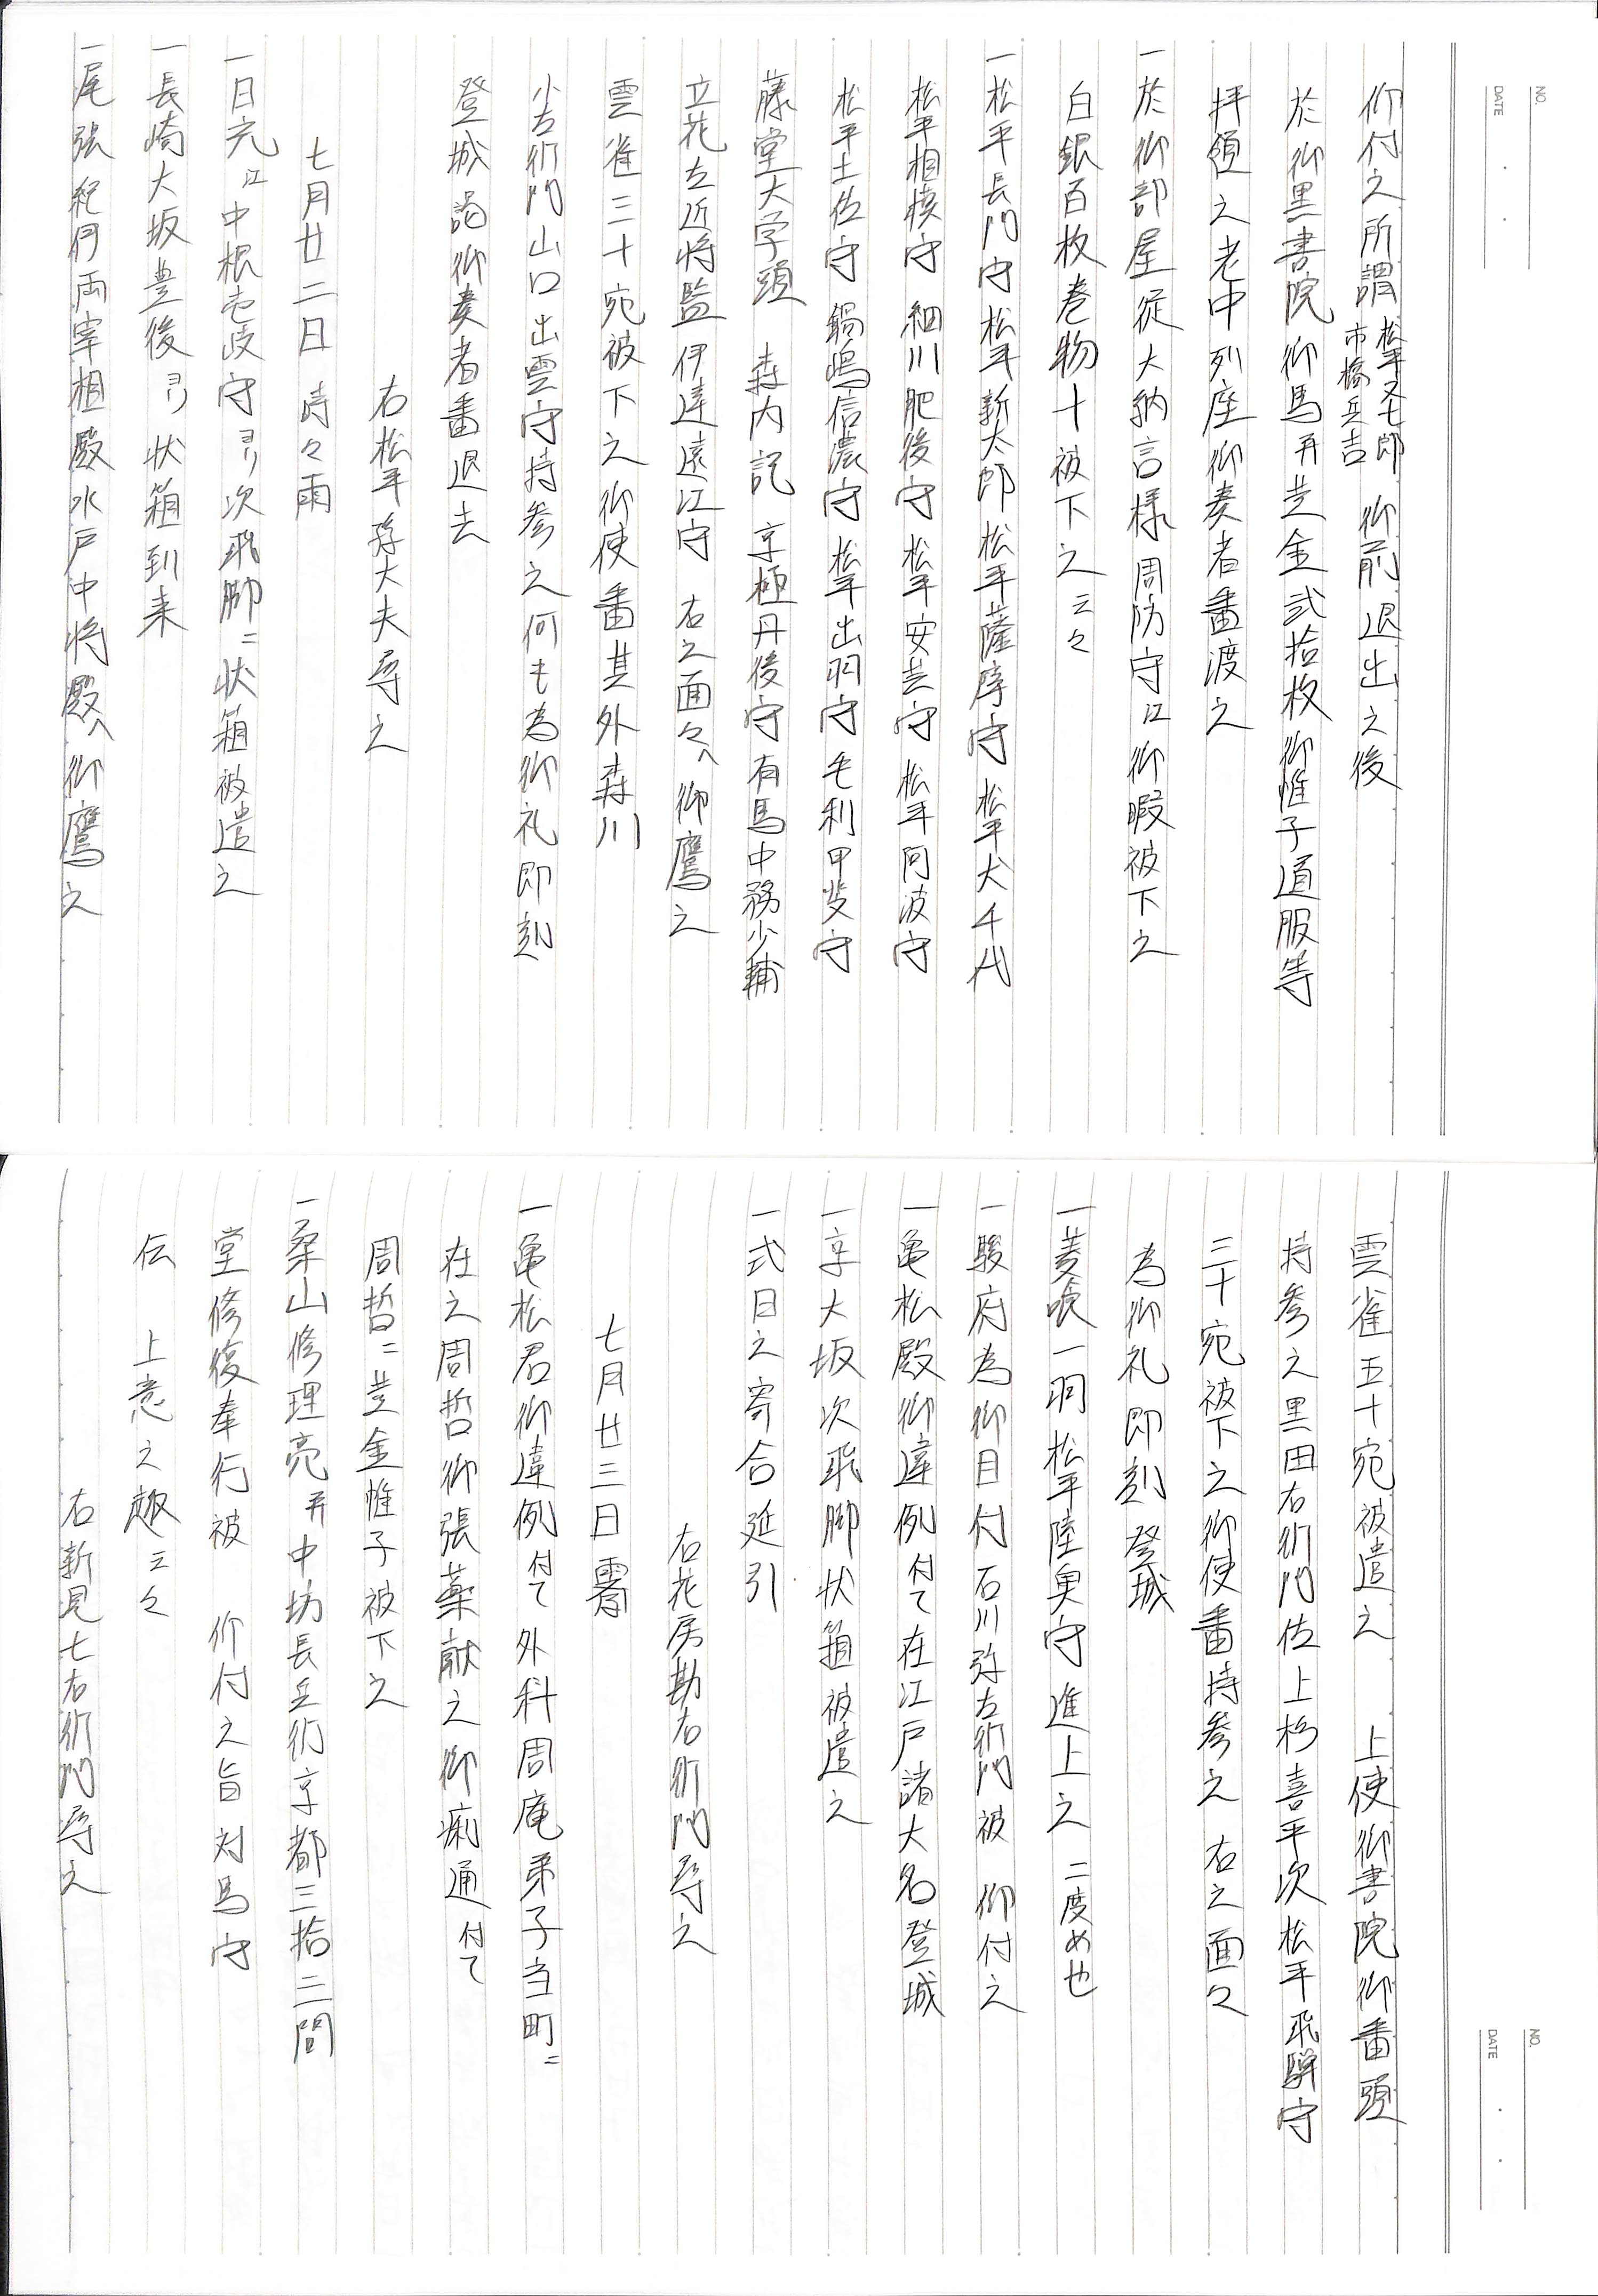 NO.
DATE
仰付之所謂 松平又七郎 市橋兵吉 御前退出之後
於御黒書院御馬并芝金弐拾枚御帷子道服等
拝領之老中列座御奏者番渡之
一於御部屋従大納言様周防守江御暇被下之
白銀百枚巻物十被下之云々
一松平長門守 松平新太郎 松平薩摩守 松平犬千代
松平相模守 細川肥後守 松平安芸守 松平阿波守
松平土佐守 鍋嶋信濃守 松平出羽守 毛利甲斐守
藤堂大学頭 森内記 京極丹後守 有馬中務少輔
立花左近将監 伊達遠江守 右之面々へ御鷹之
雲雀三十宛被下之御使番其外森川
小左衛門山口出雲守持参之何も為御礼即刻
登城謁御奏者番退去
右松平孫大夫尋之
七月廿二日 時々雨
一日光江中根壱岐守ヨリ次飛脚ニ状箱被遣之
一長崎大坂豊後ヨリ状箱到来
一尾張紀伊両宰相殿水戸中将殿へ御鷹之
NO.
DATE
雲雀五十宛被遣之 上使御書院御番頭
持参之黒田右衛門佐上杉喜平次松平飛騨守
三十宛被下之御使番持参之 右之面々
為御礼即刻登城
一菱喰一羽松平陸奥守進上之 二度め也
一駿府為御目付石川弥左衛門被 仰付之
一亀松殿御違例付て在江戸諸大名登城
一京大坂次飛脚状箱被遣之
一式日之寄合延引
右花房勘右衛門尋之
七月廿三日 霽
一亀松君御違例付て外科周庵弟子当町ニ
在之周哲御張薬献之御痢通付て
周哲ニ芝金帷子被下之
一桑山修理亮并中坊長兵衛京都三拾三間
堂修復奉行被 仰付之旨対馬守
伝 上意之趣云々
右新見七右衛門尋之